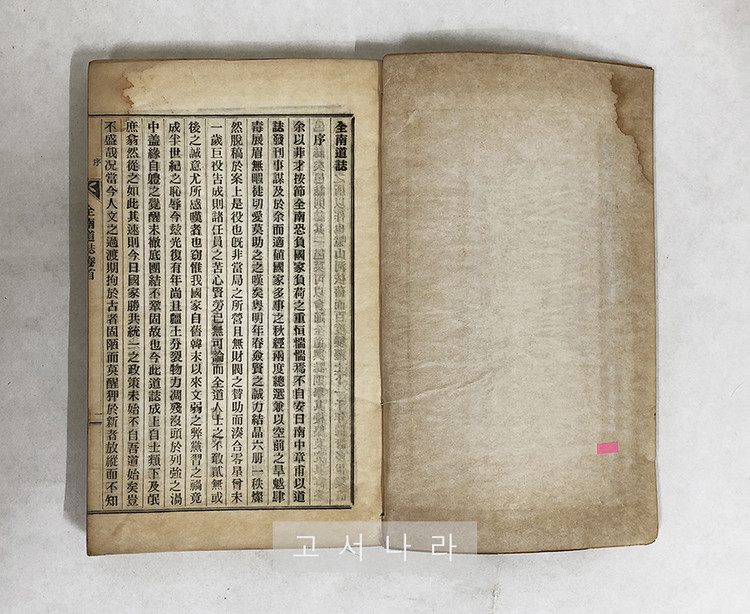 全南道誌
序
余以菲才按節全南恐負國家負荷之重恒惴惴焉不自安日南中章甫以道
誌發刊事謀及於余而適値國家多事之秋經兩度總選兼以空前之旱魃肆
毒展眉無暇徒切愛莫助之之嘆矣粤明年春僉賢之誠力結晶六册一秩燦
然脫稿於案上是役也旣非當局之所營且無財閥之贊助而湊合零星曾未
一歲巨役告成則諸任員之苦心賢勞已無可論而全道人士之不敢貳無或
後之誠意尤所感嘆者也窃惟我國家自舊韓末以來文弱之弊黨習之禍竟
成半世紀之恥辱今玆光復有年尚且疆土分裂物力凋殘沒頭於列強之渦
中盖緣自醒之覺醒未徹底團結不鞏固故也今此道誌成上自士類下及氓
庶翕然從之如此其速則今日國家勝共統一之政策未始不自吾道始矣豈
不盛哉况當今人文之過渡期拘於古者固陋而莫醒狎於新者放縱而不知
序
全南道誌卷首
一
고서나라